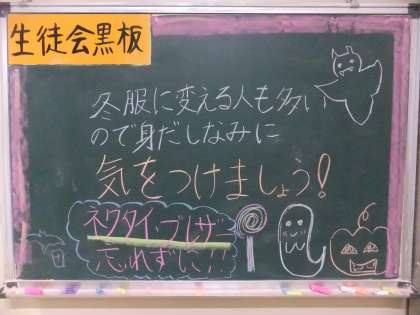 生徒会黒板
冬服に変える人も多い
ので身だしなみに
気をつけましょう!
ネクタイ・ブレザー
忘れずに!!